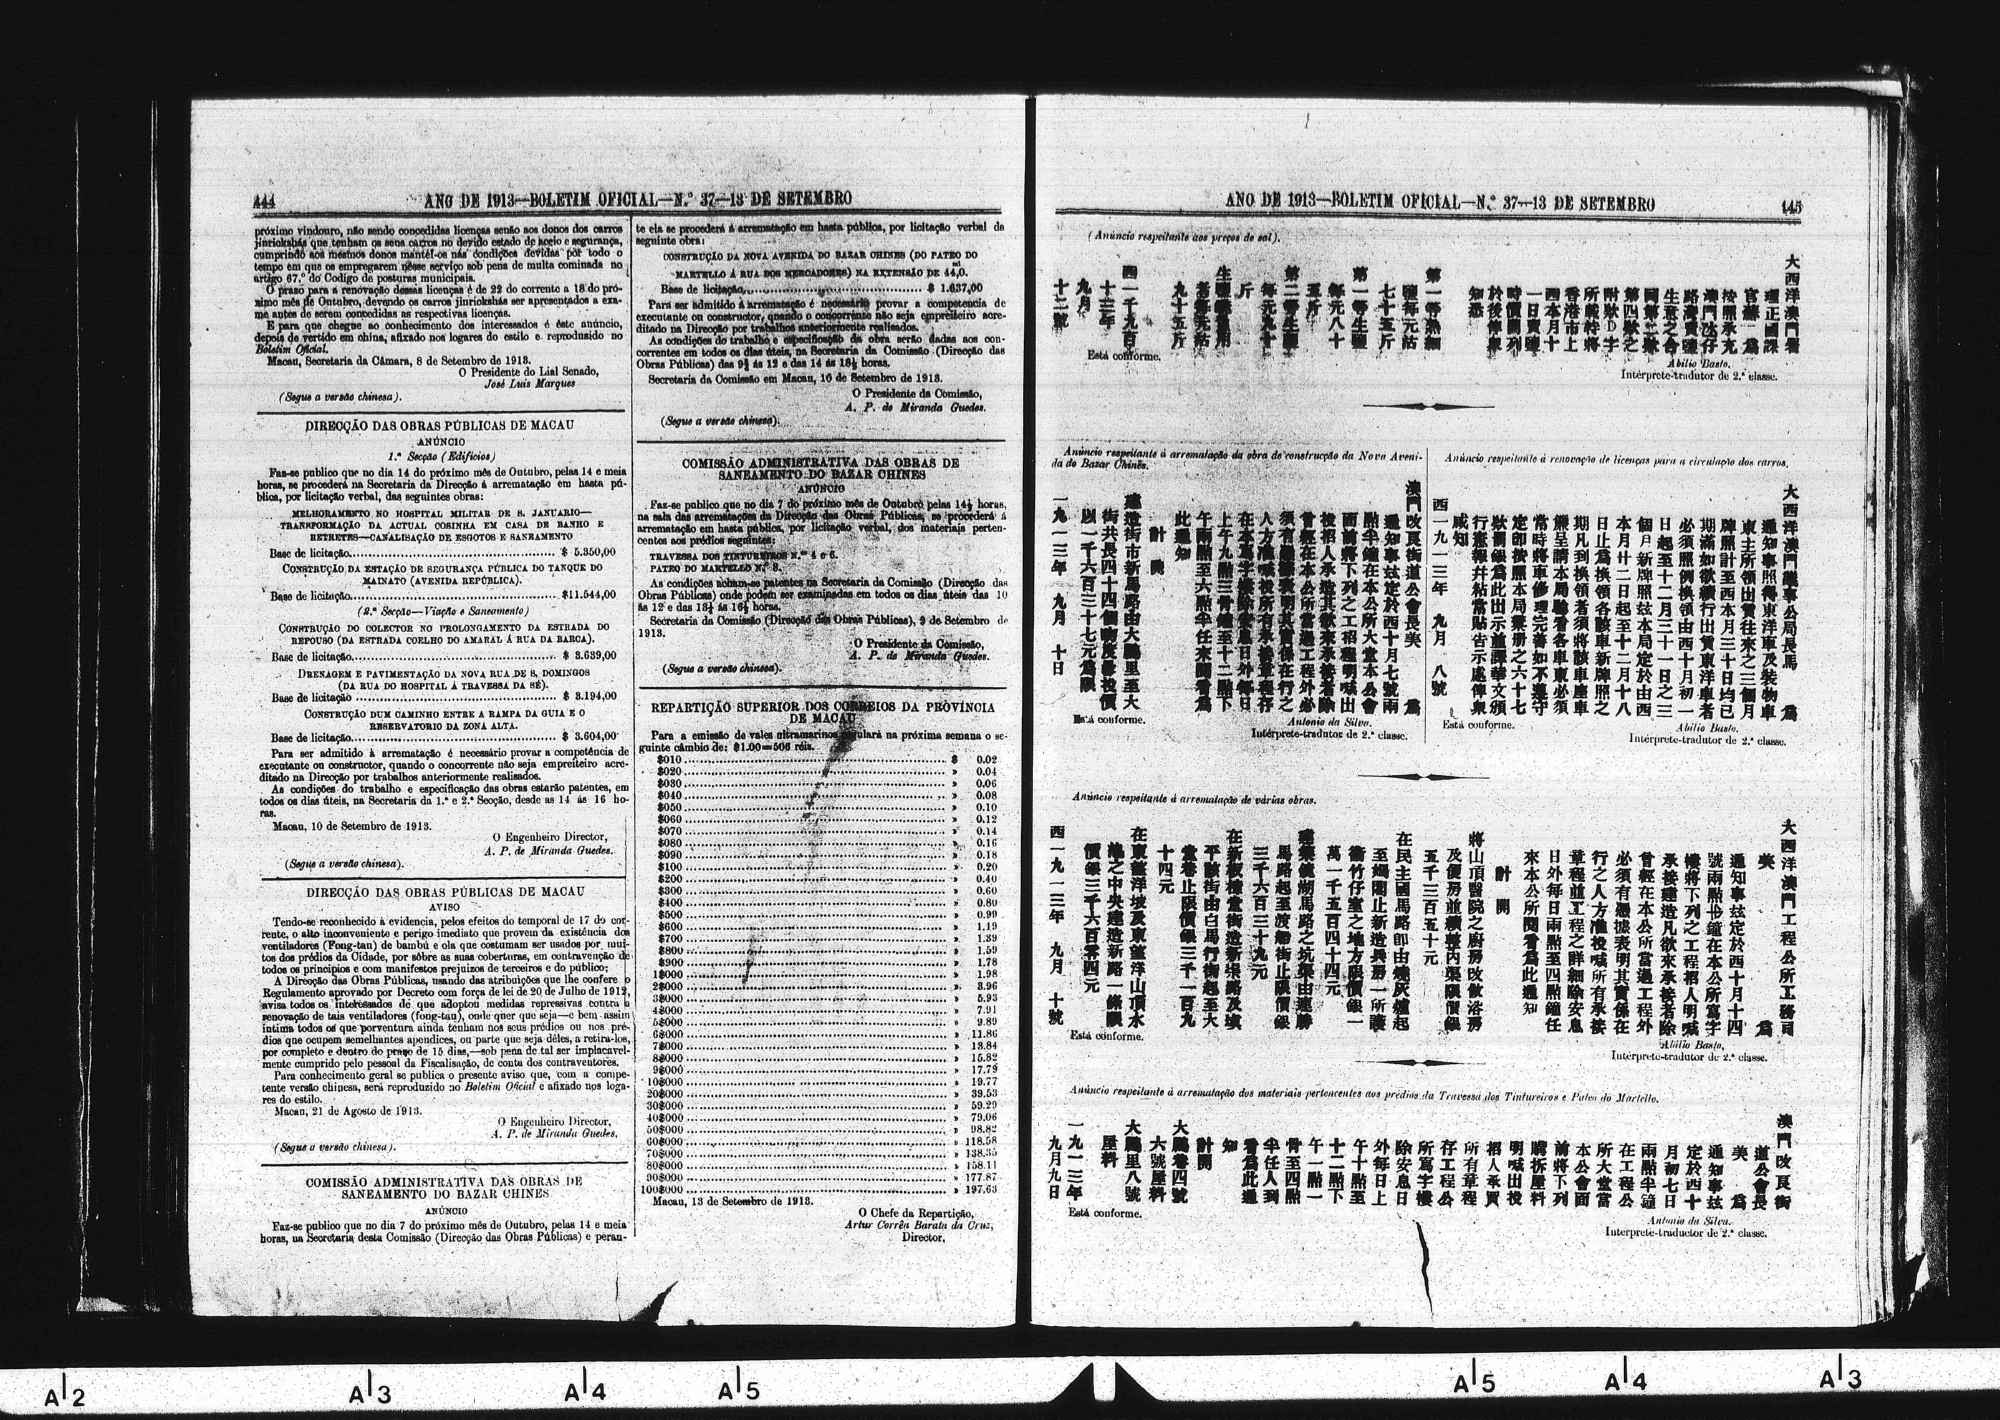 444
ANO DE 1913—BOLETIM OFICIAL—N.º 37—13 DE SETEMBRO
próximo vindouro, não sendo concedidas licenças senão aos donos dos carros
jinrickshás que tenham os seus carros no devido estado de aceio e segurança,
cumprindo aos mesmos donos mantêl-os nas condições devidas por todo o
tempo em que os empregarem nêsse serviço sob pena de multa cominada no
artigo 67.º do Codigo de posturas municipais.
O praso para a renovação dessas licenças é de 22 do corrente a 18 do pró-
ximo mês de Outubro, devendo os carros jinrickshás ser apresentados a exa-
me antes de serem concedidas as respectivas licenças.
E para que chegue ao conhecimento dos interessados é êste anúncio,
depois de vertido em china, afixado nos logares do estilo e reproduzido no
Boletim Oficial.
Macau, Secretaria da Câmara, 8 de Setembro de 1913.
O Presidente do Lial Senado,
José Luis Marques
(Segue a versão chinesa).
DIRECÇÃO DAS OBRAS PÚBLICAS DE MACAU
ANÚNCIO
1.ª Secção (Edificios)
Faz-se publico que no dia 14 do próximo mês de Outubro, pelas 14 e meia
horas, se procederá na Secretaria da Direcção á arrematação em hasta pú-
blica, por licitação verbal, das seguintes obras:
MELHORAMENTO NO HOSPITAL MILITAR DE S. JANUARIO—
TRANSFORMAÇÃO DA ACTUAL COSINHA EM CASA DE BANHO E
RETRETES—CANALISAÇÃO DE ESGOTOS E SANEAMENTO
Base de licitação........ $ 5.350,00
CONSTRUÇÃO DA ESTAÇÃO DE SEGURANÇA PÚBLICA DO TANQUE DO
MAINATO (AVENIDA REPÚBLICA).
Base de licitação........ $11.544,00
(2.ª Secção—Viação e Saneamento)
CONSTRUÇÃO DO COLECTOR NO PROLONGAMENTO DA ESTRADA DO
REPOUSO (DA ESTRADA COELHO DO AMARAL Á RUA DA BARCA).
Base de licitação........ $ 3.639,00
DRENAGEM E PAVIMENTAÇÃO DA NOVA RUA DE S. DOMINGOS
(DA RUA DO HOSPITAL Á TRAVESSA DA SÉ).
Base de licitação........ $ 3.194,00
CONSTRUÇÃO DUM CAMINHO ENTRE A RAMPA DA GUIA E O
RESERVATORIO DA ZONA ALTA.
Base de licitação........ $ 3.604,00
Para ser admitido à arrematação é necessário provar a competência de
executante ou constructor, quando o concorrente não seja empreiteiro acre-
ditado na Direcção por trabalhos anteriormente realisados.
As condições do trabalho e especificação das obras estarão patentes, em
todos os dias úteis, na Secretaria da 1.ª e 2.ª Secção, desde as 14 ás 16 ho-
ras.
Macau, 10 de Setembro de 1913.
O Engenheiro Director,
A. P. de Miranda Guedes.
(Segue a versão chinesa).
DIRECÇÃO DAS OBRAS PÚBLICAS DE MACAU
AVISO
Tendo-se reconhecido à evidencia, pelos efeitos do temporal de 17 do cor-
rente, o alto inconveniente e perigo imediato que provem da existência dos
ventiladores (Fong-tan) de bambú e ola que costumam ser usados por mui-
tos dos prédios da Cidade, por sôbre as suas coberturas, em contravenção de
todos os principios e com manifestos prejuizos de terceiros e do público;
A Direcção das Obras Públicas, usando das atribuições que lhe confere o
Regulamento aprovado por Decreto com força de lei de 20 de Julho de 1912,
avisa todos os interessados de que adoptou medidas repressivas contra a
renovação de tais ventiladores (fong-tan), onde quer que seja—e bem assim
intima todos os que porventura ainda tenham nos seus prédios ou nos pré-
dios que ocupem semelhantes apendices, ou parte que seja dêles, a retira-los,
por completo e dentro do praso de 15 dias,—sob pena de tal ser implacavel-
mente cumprido pelo pessoal da Fiscalisação, de conta dos contraventores.
Para conhecimento geral se publica o presente aviso que, com a compe-
tente versão chinesa, será reproduzido no Boletim Oficial e afixado nos loga-
res do estilo.
Macau, 21 de Agosto de 1913.
O Engenheiro Director,
A. P. de Miranda Guedes.
(Segue a versão chinesa).
COMISSÃO ADMINISTRATIVA DAS OBRAS DE
SANEAMENTO DO BAZAR CHINES
ANÚNCIO
Faz-se publico que no dia 7 do próximo mês de Outubro, pelas 14 e meia
horas, na Secretaria desta Comissão (Direcção das Obras Públicas) e peran-
te ela se procederá á arrematação em hasta pública, por licitação verbal da
seguinte obra:
CONSTRUÇÃO DA NOVA AVENIDA DO BAZAR CHINES (DO PATEO DO
MARTELLO Á RUA DOS MERCADORES) NA EXTENSÃO DE 44,0.
Base de licitação........ $ 1.637,00
Para ser admitido á arrematação é necessário provar a competencia de
executante ou constructor, quando o concorrente não seja empreiteiro acre-
ditado na Direcção por trabalhos anteriormente realisados.
As condições do trabalho e especificação da obra serão dadas aos con-
correntes em todos os dias úteis, na Secretaria da Comissão (Direcção das
Obras Públicas) das 9½ ás 12 e das 14 ás 16½ horas.
Secretaria da Comissão em Macau, 10 de Setembro de 1913.
O Presidente da Comissão,
A. P. de Miranda Guedes.
(Segue a versão chinesa).
COMISSÃO ADMINISTRATIVA DAS OBRAS DE
SANEAMENTO DO BAZAR CHINES
ANÚNCIO
Faz-se publico que no dia 7 do próximo mês de Outubro pelas 14½ horas,
na sala das arrematações da Direcção das Obras Públicas, se procederá á
arrematação em hasta pública, por licitação verbal, dos materiais perten-
centes aos prédios seguintes:
TRAVESSA DOS TINTUREIROS N.os 4 e 6.
PATEO DO MARTELLO N.º 8.
As condições acham-se patentes na Secretaria da Comissão (Direcção das
Obras Públicas) onde podem ser examinadas em todos os dias úteis das 10
ás 12 e das 13½ ás 16½ horas.
Secretaria da Comissão (Direcção das Obras Públicas), 9 de Setembro de
1913.
O Presidente da Comissão,
A. P. de Miranda Guedes.
(Segue a versão chinesa).
REPARTIÇÃO SUPERIOR DOS CORREIOS DA PROVÍNCIA
DE MACAU
Para a emissão de vales ultramarinos regulará na próxima semana o se-
guinte câmbio de: $1.00=506 réis.
$010 ........ $ 0.02
$020 ........ » 0.04
$030 ........ » 0.06
$040 ........ » 0.08
$050 ........ » 0.10
$060 ........ » 0.12
$070 ........ » 0.14
$080 ........ » 0.16
$090 ........ » 0.18
$100 ........ » 0.20
$200 ........ » 0.40
$300 ........ » 0.60
$400 ........ » 0.80
$500 ........ » 0.99
$600 ........ » 1.19
$700 ........ » 1.39
$800 ........ » 1.59
$900 ........ » 1.78
1$000 ........ » 1.98
2$000 ........ » 3.96
3$000 ........ » 5.93
4$000 ........ » 7.91
5$000 ........ » 9.89
6$000 ........ » 11.86
7$000 ........ » 13.84
8$000 ........ » 15.82
9$000 ........ » 17.79
10$000 ........ » 19.77
20$000 ........ » 39.53
30$000 ........ » 59.29
40$000 ........ » 79.06
50$000 ........ » 98.82
60$000 ........ » 118.58
70$000 ........ » 138.35
80$000 ........ » 158.11
90$000 ........ » 177.87
100$000 ........ » 197.63
Macau, 13 de Setembro de 1913.
O Chefe da Repartição,
Artur Corrêa Barata da Cruz,
Director.
ANO DE 1913—BOLETIM OFICIAL—N.º 37—13 DE SETEMBRO
445
(Anúncio respeitante aos preços de sal).
大西洋澳門署
理正國課
官蘇 爲
按照承充
澳門氹仔
路灣賣鹽
生意之合
同第二款
第四款之
附款D字
所載特將
香港市上
西本月十
一日賣鹽
時價開列
於後俾衆
知悉
第一等熟細
鹽每元沽
七十五斤
第一等生鹽
每元八十
五斤
第二等生鹽
每元九十
斤
九十五斤
西一千九百
十三年
九月
十二號
Está conforme.
Abilio Basto,
Intérprete-tradutor de 2.ª classe.
Anúncio respeitante à arrematação da obra de construcção da Nova Aveni-
da do Bazar Chinês.
澳門改良街道公會長美 爲
通知事玆定於西十月七號兩
點半鐘在本公所大堂本公會
面前將下列之工程明喊出
投招人承造其欲來承接者除
曾經在本公所當過工程外必
須有憑據表明其實係在行之
人方准喊投所有承接章程存
在本寫字樓除安息日外每日
上午九點三骨鐘至十二點下
午兩點至六點半任來閱看爲
此通知
計開
建造街市新馬路由大鵬里至大
街共長四十四個物度最投價
以一千六百三十七元爲限
一九一三年 九月 十日
Está conforme.
Antonio da Silva.
Intérprete-tradutor de 2.ª classe.
Anúncio respeitante à renovação de licenças para a circulação dos carros.
大西洋澳門議事公局長馬 爲
通知事照得東洋車及裝物車
車主所領出賃往來之三個月
牌照計至西本月三十日均已
期滿如欲續行出賃東洋車者
必須照例換領由西十月初一
日起至十二月三十一日之三
個月新牌照玆本局定於由西
本月廿二日起至十二月十八
日止爲換領各該車新牌照之
期凡到換領者須將該車座車
熊呈請本局驗看各車東必須
當時將車修理完善如不遵守
定卽按照本局裝册之六十七
款罰銀爲此出示並譯華文頒
行憲報幷粘當貼告示處俾衆
咸知
西一九一三年 九月 八號
Está conforme.
Abilio Basto.
Intérprete-tradutor de 2.ª classe.
Anúncio respeitante á arrematação de várias obras.
大西洋澳門工程公所工務司
美 爲
通知事玆定於西十月十四
號兩點半鐘在本公所寫字
樓將下列之工程招人明喊
承接建造凡欲來承接者除
曾經在本公所當過工程外
必須有憑據表明其實係在
行之人方准投喊所有承接
章程並工程之詳細除安息
日外每日兩點至四點鐘任
來本公所閱看爲此通知
計開
將山頂醫院之廚房改做浴房
及便房並續整內渠限價銀
五千三百五十元
在民主國馬路卽由燒灰爐起
至媽閣止新造兵房一所護
衛竹仔室之地方限價銀一
萬一千五百四十四元
建築鏡湖馬路之坑渠由連勝
馬路起至渡船街止限價銀
三千六百三十九元
在新板樟堂街造新渠路及填
平該街由白馬行街起至大
堂巷止限價銀三千一百九
十四元
在東望洋坡及東望洋山頂水
池之中央建造新路一條限
價銀三千六百零四元
西一九一三年 九月 十號
Está conforme.
Abilio Basto,
Intérprete-tradutor de 2.ª classe.
Anúncio respeitante á arrematação dos materiais pertencentes aos prédios da Travessa dos Tintureiros e Pateo do Martello.
澳門改良街
道公會長
美 爲
通知事玆
定於西十
月初七日
兩點半鐘
在工程公
所大堂當
本公會面
前將下列
購拆屋料
明喊出投
招人承買
所有章程
存工程公
所寫字樓
除安息日
外每日上
午十點至
十二點下
午一點一
骨至四點
半任人到
看爲此通
知
計開
大鵬巷四號
六號屋料
大鵬里八號
屋料
一九一三年
九月九日
Está conforme.
Antonio da Silva.
Interprete-traductor de 2.ª classe.
A 2
A 3
A 4
A 5
A 5
A 4
A 3